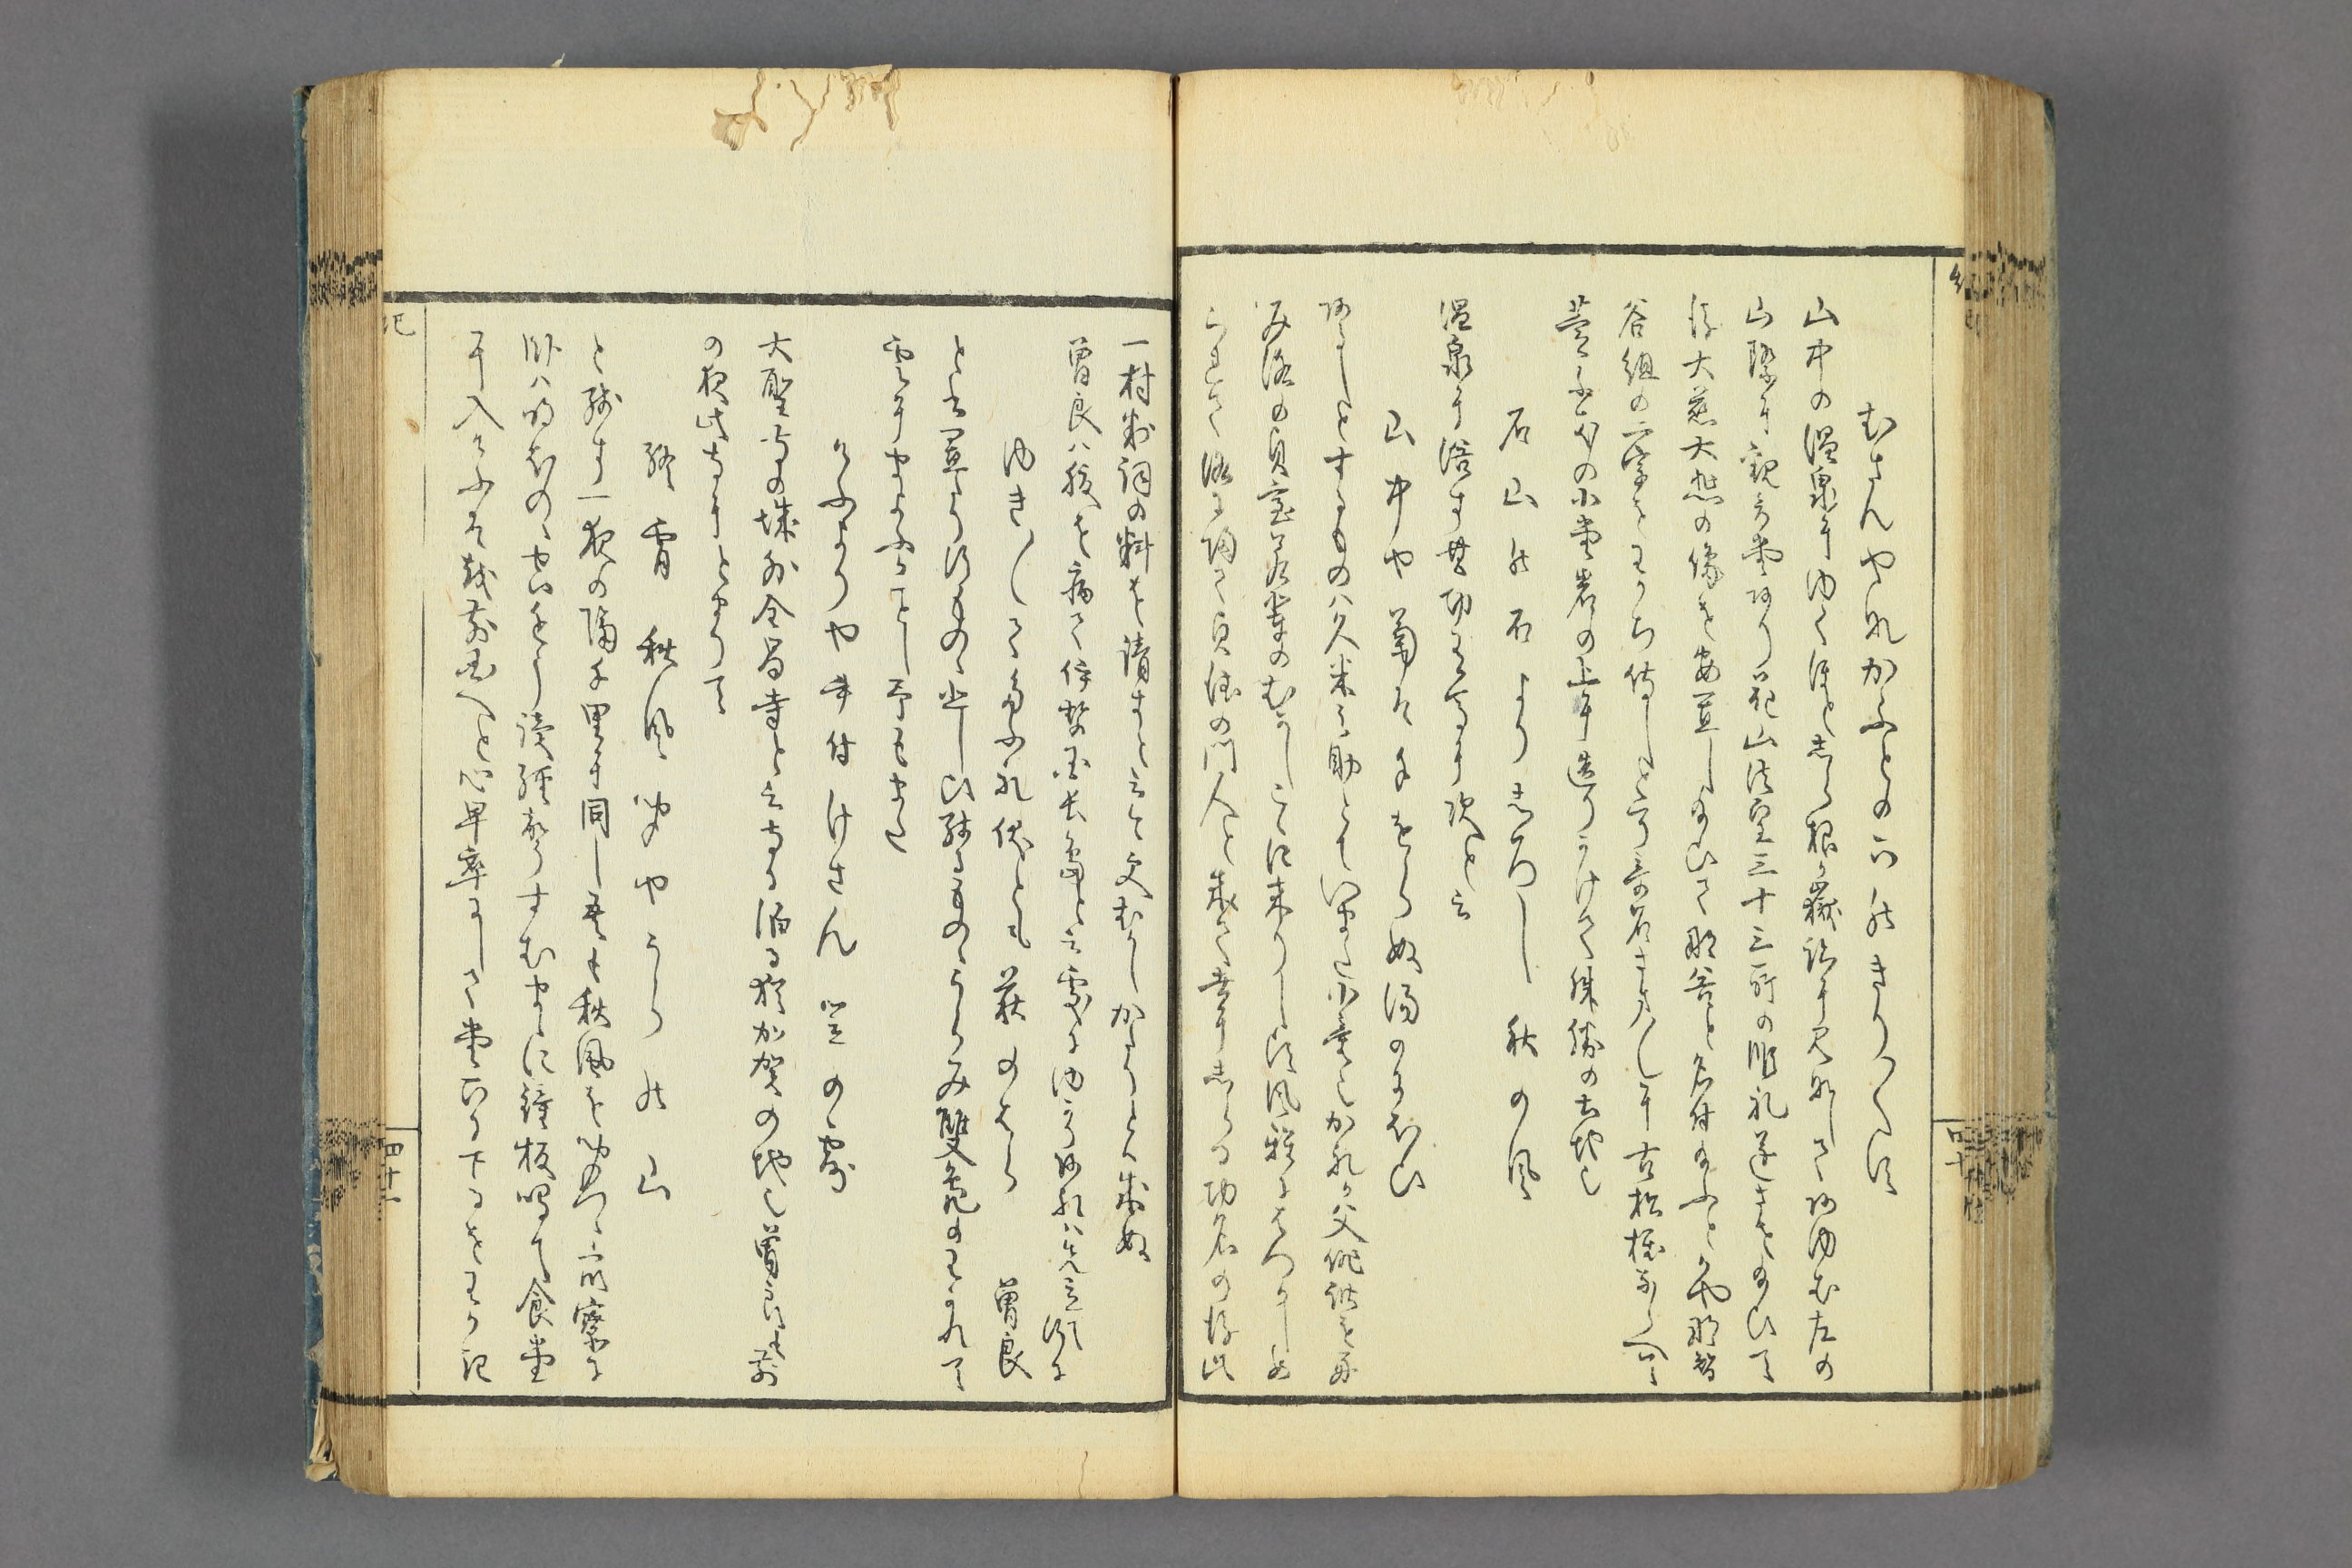 むさんやなかふとの下のきり〱す
山中の温泉にゆくほと志ら根か嶽跡に見なしてあゆむ左の
山際に観音堂あり花山法皇三十三所の順礼遂させ給ひて
後大慈大悲の像を安置し給ひて那谷と名付給ふとかや那智
谷組の二字をわかち侍しと云奇石さま〱に古松植ならへて
萱ふきの小堂岩の上に造りかけて殊勝の土地也
石山の石より志ろし秋の風
温泉に浴す其功有馬に次と云
山中や菊はたをらぬ湯のにほひ
あるしとするものハ久米之助とていまた小童也かれか父俳諧を好
み洛の貞室若輩のむかしこゝに来りし比風雅にはつかしめ
られて洛に帰て貞徳の門人と成て世に志らる功名の後此
一村判詞の料を請すと云今更むかしかたりとハ成ぬ
曽良ハ腹を病て伊勢国長嶋と云處にゆかりあれハ先立て行に
ゆき〱てたふれ伏とも萩のはら　曽良
と書置たり行ものゝ悲しひ残るものゝうらみ雙鳬のわかれて
雲にまよふかことし予も又
けふよりや書付けさん笠の露
大聖寺の城外全昌寺と云寺に泊る猶加賀の地也曽良も前
の夜此寺にとまりて
終宵秋風聞やうらの山
と残す一夜の隔千里に同し吾も秋風を聞つゝ衆寮に
臥ハ明ほのゝ空近う読経声すむまゝに鐘板鳴て食堂
に入けふは越前国へと心早卒にして堂下に下るをわか
記
四十一
四十